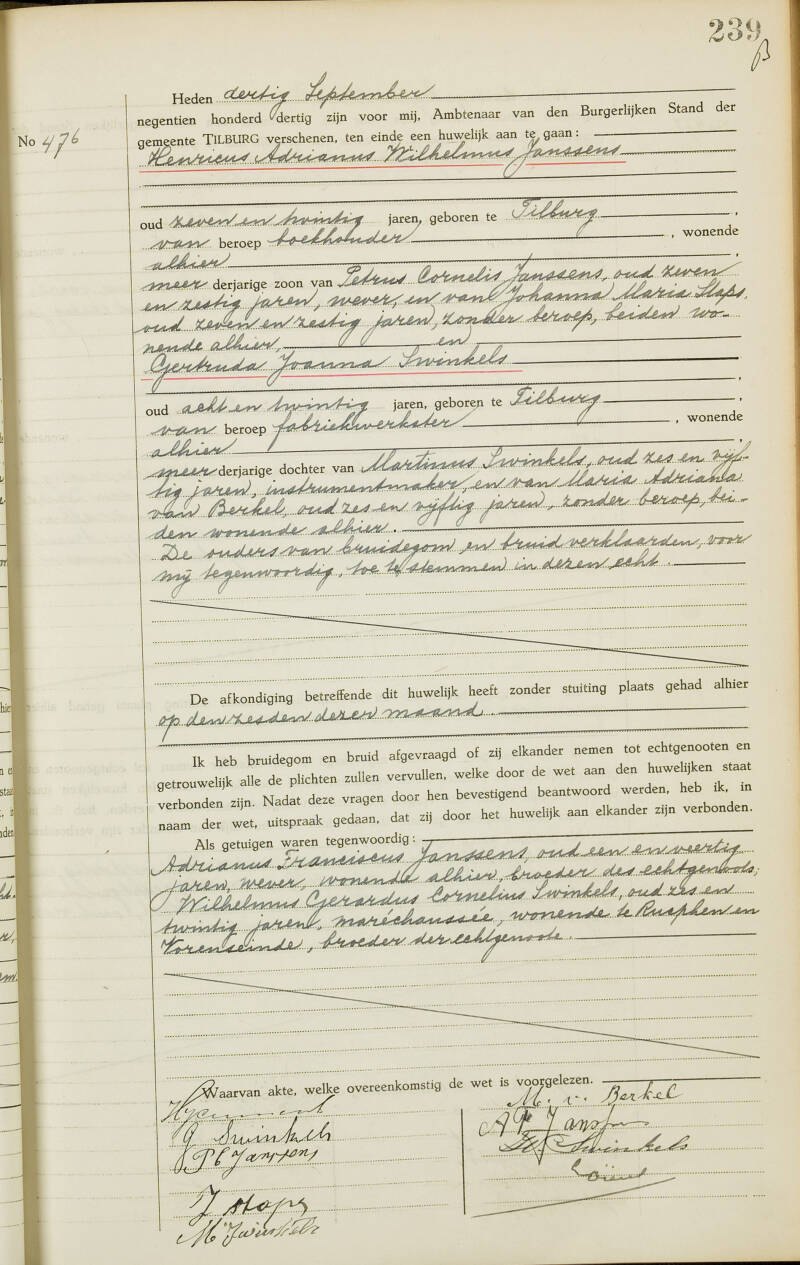 239
B
No 476
Heden dertig September
negentien honderd dertig zijn voor mij, Ambtenaar van den Burgerlijken Stand der
gemeente TILBURG verschenen, ten einde een huwelijk aan te gaan:
Henricus Adrianus Wilhelmus Janssens
oud zeven en twintig jaren, geboren te Tilburg,
van beroep boekhouder, wonende
alhier,
meer derjarige zoon van Petrus Cornelis Janssens, oud zeven
en zestig jaren, wever, en van Johanna Maria Staps,
oud zeven en zestig jaren, zonder beroep, beiden wo-
nende alhier, en
Gertruda Joanna Swinkels,
oud acht en twintig jaren, geboren te Tilburg,
van beroep fabriekwerkster, wonende
alhier,
meer derjarige dochter van Martinus Swinkels, oud zes en vijf-
tig jaren, instrumentmaker, en van Maria Adriana
van Berkel, oud zes en vijftig jaren, zonder beroep, bei-
den wonende alhier.
De ouders van bruidegom en bruid verklaarden, voor
mij tegenwoordig, toe te stemmen in dezen echt.
De afkondiging betreffende dit huwelijk heeft zonder stuiting plaats gehad alhier
op den zesden dezer maand.
Ik heb bruidegom en bruid afgevraagd of zij elkander nemen tot echtgenooten en
getrouwelijk alle de plichten zullen vervullen, welke door de wet aan den huwelijken staat
verbonden zijn. Nadat deze vragen door hen bevestigend beantwoord werden, heb ik, in
naam der wet, uitspraak gedaan, dat zij door het huwelijk aan elkander zijn verbonden.
Als getuigen waren tegenwoordig:
Adrianus Franciscus Janssens, oud een en veertig
jaren, wever, wonende alhier, broeder des echtgenoots;
Wilhelmus Gerardus Cornelius Swinkels, oud zes en
twintig jaren, maréchaussée, wonende te Rucphen en
Vorenseinde, broeder der echtgenoote.
Waarvan akte, welke overeenkomstig de wet is voorgelezen.
G Swinkels
P C Janssens
J Staps
M Swinkels
M. v. Berkel
A F Janssens
Swinkels